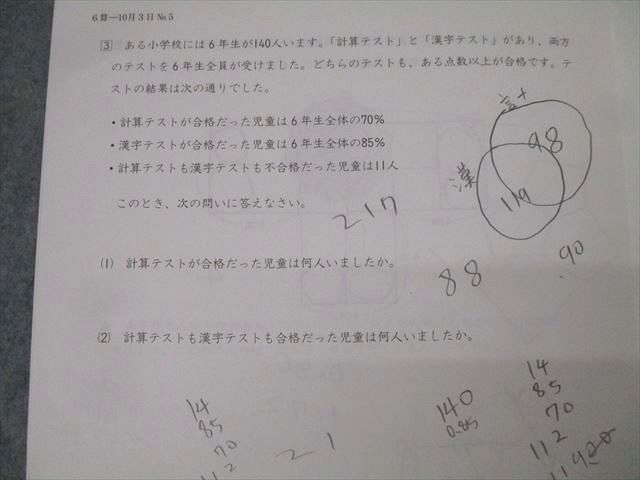 6算―10月3日 №5
3 ある小学校には6年生が140人います。「計算テスト」と「漢字テスト」があり、両方
のテストを6年生全員が受けました。どちらのテストも、ある点数以上が合格です。テ
ストの結果は次の通りでした。
・計算テストが合格だった児童は6年生全体の70%
・漢字テストが合格だった児童は6年生全体の85%
・計算テストも漢字テストも不合格だった児童は11人
このとき、次の問いに答えなさい。
計
98
漢
119
217
(1) 計算テストが合格だった児童は何人いましたか。
88
90
(2) 計算テストも漢字テストも合格だった児童は何人いましたか。
14
85
70
112
21
140
0.85
14
85
70
112